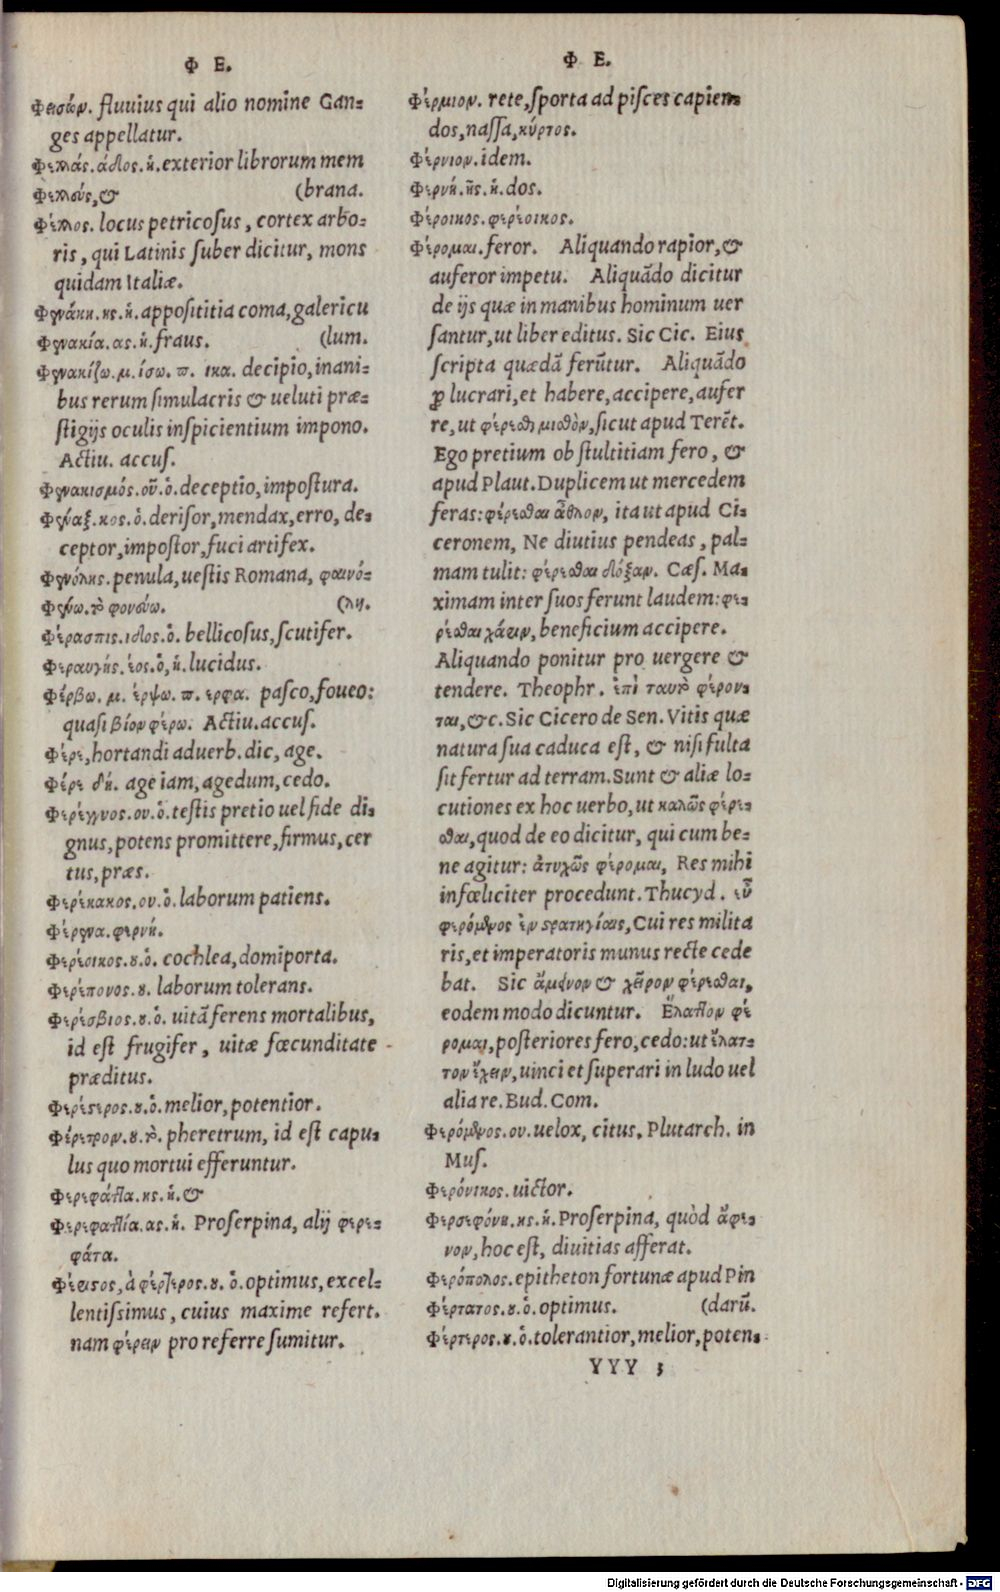 Φ Ε.
Φεισών. fluuius qui alio nomine Gan-
ges appellatur.
Φελλάς. άδος. ἡ. exterior librorum mem
Φελλούς, & (brana.
Φέλλος. locus petricosus, cortex arbo-
ris, qui Latinis suber dicitur, mons
quidam Italiæ.
Φενάκη. ης. ἡ. appositia coma, galericu
Φενακία. ας. ἡ. fraus. (lum.
Φενακίζω. μ. ίσω. π. ικα. decipio, inani-
bus rerum simulacris & ueluti præ-
stigijs oculis inspicientium impono.
Actiu. accus.
Φενακισμός. οῦ. ὁ. deceptio, impostura.
Φέναξ. κος. ὁ. derisor, mendax, erro, de-
ceptor, impostor, fuci artifex.
Φενόλης. penula, uestis Romana, φαινό-
Φένω. τὸ φονεύω. (λη.
Φέρασπις. ιδος. ὁ. bellicosus, scutifer.
Φεραυγής. έος. ὁ, ἡ. lucidus.
Φέρβω. μ. έρψω. π. ερφα. pasco, foueo:
quasi βίον φέρω. Actiu. accus.
Φέρε, hortandi aduerb. dic, age.
Φέρε δή. age iam, agedum, cedo.
Φερέγγυος. ου. ὁ. testis pretio uel fide di-
gnus, potens promittere, firmus, cer
tus, præs.
Φερέκακος. ου. ὁ. laborum patiens.
Φέρενα. φερνή.
Φερέοικος. ου. ὁ. cochlea, domiporta.
Φερέπονος. ου. laborum tolerans.
Φερέσβιος. ου. ὁ. uitã ferens mortalibus,
id est frugifer, uitæ fœcunditate
præditus.
Φερέστερος. ου. ὁ. melior, potentior.
Φέρετρον. ου. τὸ. pheretrum, id est capu-
lus quo mortui efferuntur.
Φερεφάττα. ης. ἡ. &
Φερεφαττία. ας. ἡ. Proserpina, alij φερε-
φάτα.
Φέριστος, ἀ φέρτερος. ου. ὁ. optimus, excel-
lentissimus, cuius maxime refert.
nam φέρειν pro referre sumitur.
Φ Ε.
Φέρμιον. rete, sporta ad pisces capien-
dos, nassa, κύρτος.
Φέρνιον. idem.
Φερνή. ῆς. ἡ. dos.
Φέροικος. φερέοικος.
Φέρομαι. feror. Aliquando rapior, &
auferor impetu. Aliquãdo dicitur
de ijs quæ in manibus hominum uer
santur, ut liber editus. Sic Cic. Eius
scripta quædã ferũtur. Aliquãdo
ꝓ lucrari, et habere, accipere, aufer
re, ut φέρεσθαι μισθὸν, sicut apud Terẽt.
Ego pretium ob stultitiam fero, &
apud Plaut. Duplicem ut mercedem
feras: φέρεσθαι ἆθλον, ita ut apud Ci-
ceronem, Ne diutius pendeas, pal-
mam tulit: φέρεσθαι δόξαν. Cæs. Ma-
ximam inter suos ferunt laudem: φε-
ρέσθαι χάριν, beneficium accipere.
Aliquando ponitur pro uergere &
tendere. Theophr. ἐπὶ ταυτὸ φέρον-
ται, &c. Sic Cicero de Sen. Vitis quæ
natura sua caduca est, & nisi fulta
sit fertur ad terram. Sunt & aliæ lo-
cutiones ex hoc uerbo, ut καλῶς φέρε-
σθαι, quod de eo dicitur, qui cum be-
ne agitur: ἀτυχῶς φέρομαι, Res mihi
infœliciter procedunt. Thucyd. εὖ
φερόμενος ἐν στρατηγίαις, Cui res milita
ris, et imperatoris munus recte cede
bat. Sic ἄμεινον & χεῖρον φέρεσθαι,
eodem modo dicuntur. Ἔλαττον φέ
ρομαι, posteriores fero, cedo: ut ἔλατ-
τον ἔχειν, uinci et superari in ludo uel
alia re. Bud. Com.
Φερόμενος. ου. uelox, citus. Plutarch. in
Mus.
Φερόνικος. uictor.
Φερσεφόνη. ης. ἡ. Proserpina, quòd ἄφε-
νον, hoc est, diuitias afferat.
Φερόπολος. epitheton fortunæ apud Pin
Φέρτατος. ου. ὁ. optimus. (darũ.
Φέρτερος. ου. ὁ. tolerantior, melior, poten-
YYY 3
Digitalisierung gefördert durch die Deutsche Forschungsgemeinschaft - DFG